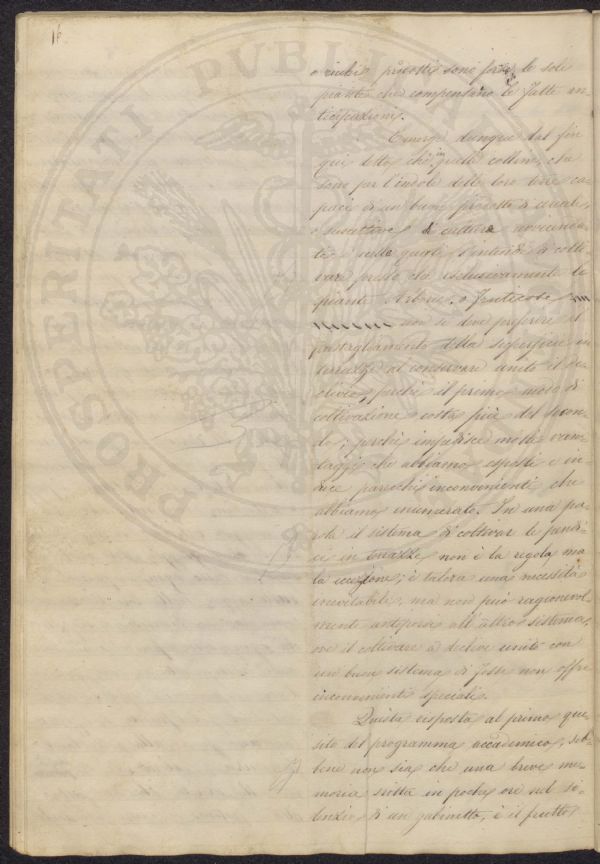 16
o viti precoti sono forse le sole
piante che compensano le fatte an-
ticipazioni.
Emerge dunque dal fin
qui detto, che in quelle colline, che
sono per l'indole delle loro terre ca-
paci di un buon prodotto di cereali,
o suscettive di culture avvicenda-
te, e sulle quali s'intende di colti-
var presso che esclusivamente le
piante Arboree, o fruticose
non si deve preferire il
frastagliamento della superficie in
terrazzi al conservare unito il de-
clivio, perchè il primo modo di
coltivazione costa più del secon-
do; perchè impedisce molti van-
taggi che abbiamo esposti e in-
duce parecchi inconvenienti che
abbiamo enumerato. In una pa-
rola il sistema di coltivar le pendi-
ci in terrazzi non è la regola, ma
la eccezione; è talora una necessità
inevitabile, ma non può ragionevol-
mente anteporsi all'altro sistema,
ove il coltivare a declive unito con
un buon sistema di fosse non offre
inconvenienti speciali.
Questa risposta al primo que-
sito del programma accademico, seb-
bene non sia che una breve me-
moria scritta in poche ore nel si-
lenzio di un gabinetto, è il frutto
PROSPERITATI PUBLICAE